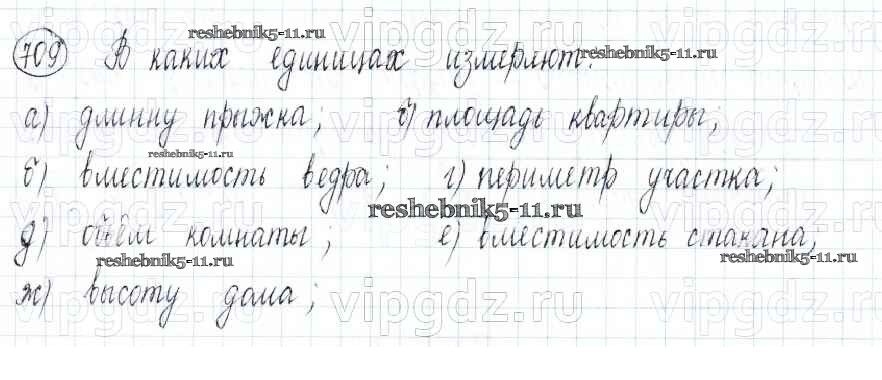 709 В каких единицах измерлют:
reshebnik5-11.ru
reshebnik5-11.ru
а) длинну прыжка; б) площадь квартиры;
reshebnik5-11.ru
б) вместимость ведра; г) периметр участка;
reshebnik5-11.ru
д) объём комнаты; е) вместимость стакана;
reshebnik5-11.ru
reshebnik5-11.ru
ж) высоту дома;
vipgdz.ru vipgdz.ru vipgdz.ru